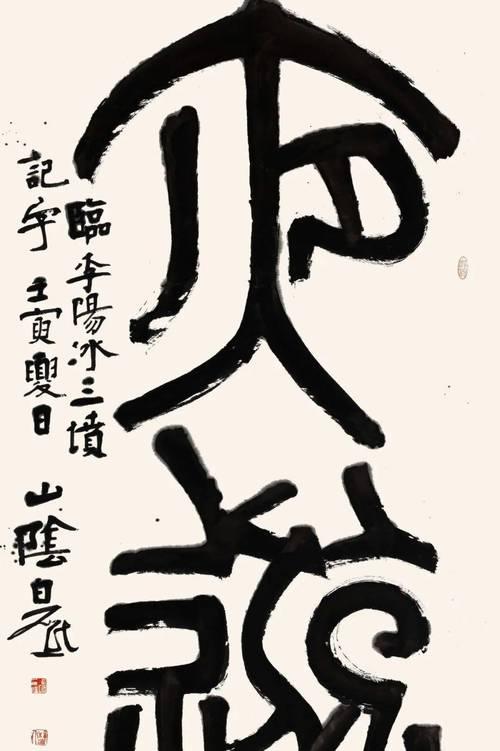 夜
臨李陽冰三墳
記字 壬寅夏日 山陰白砥